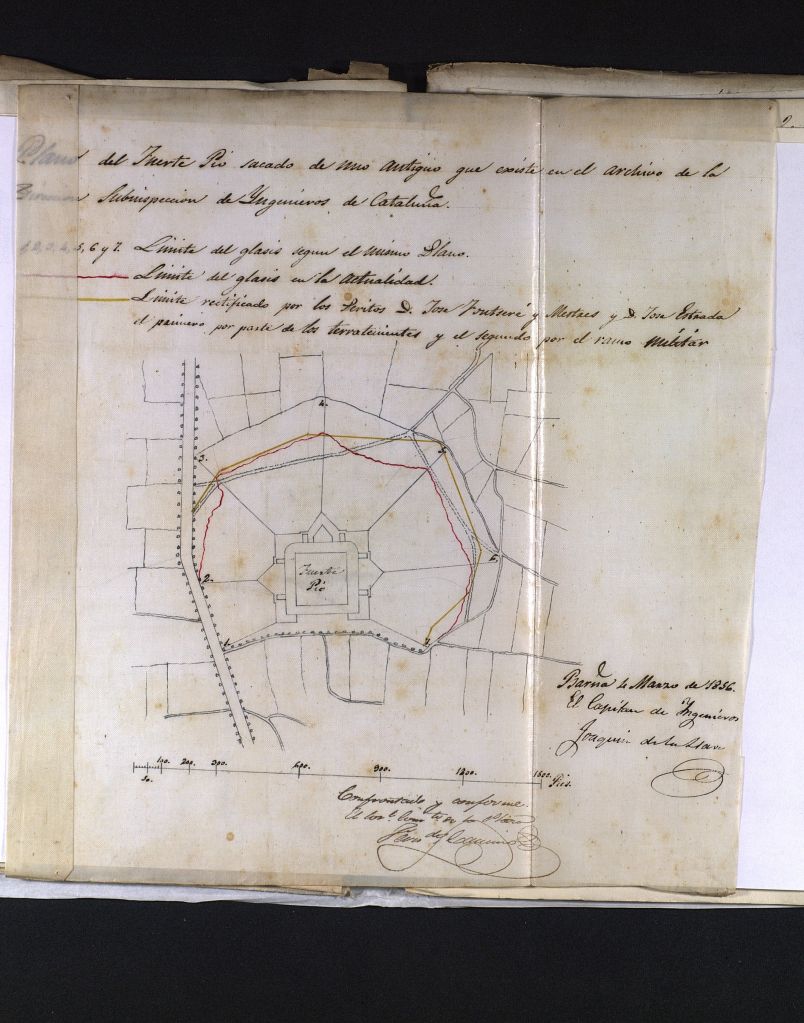 Plano del Fuerte Pio sacado de uno antiguo que existe en el archivo de la
Direccion Subinspeccion de Yngenieros de Cataluña.
1, 2, 3, 4, 5, 6 y 7. Limite del glasis segun el mismo Plano.
Limite del glasis en la actualidad.
Limite rectificado por los Peritos D. Jose Fontseré y Mestres y D. Jose Estrada
el primero por parte de los terratenientes y el segundo por el ramo militár
4.
3.
5.
6.
Fuerte
Pio
2.
1.
7.
Barña 4 Marzo de 1856.
El Capitan de Yngenieros
Joaquin de la
100. 200. 300. 600. 900. 1200. 1500. Pies.
50.
Confrontado y conforme.